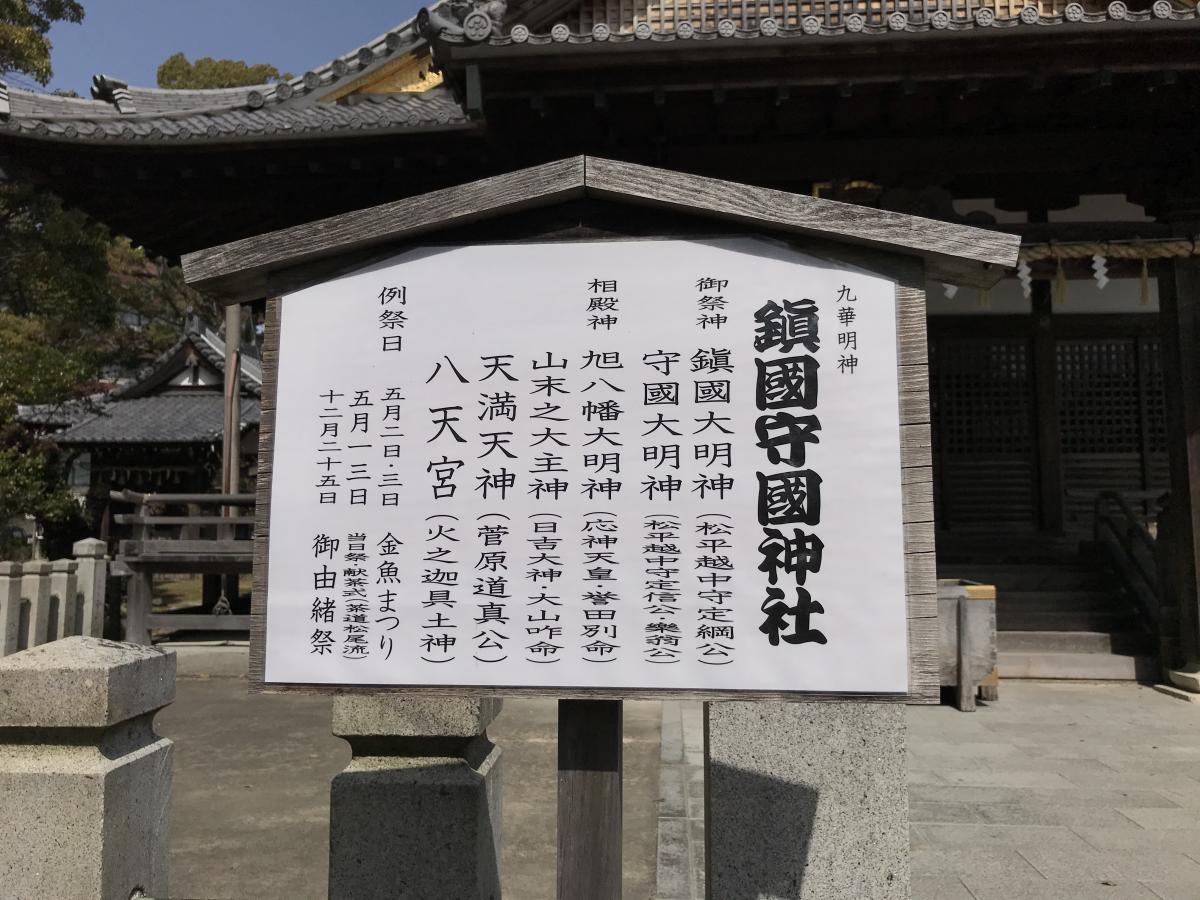 九華明神
鎭國守國神社
御祭神 鎭國大明神（松平越中守定綱公）
守國大明神（松平越中守定信公・樂翁公）
相殿神 旭八幡大明神（応神天皇・誉田別命）
山末之大主神（日吉大神・大山咋命）
天満天神（菅原道真公）
八天宮（火之迦具土神）
例祭日 五月二日・三日 金魚まつり
五月一三日 当日祭・献茶式（茶道松尾流）
十二月二十五日 御由緒祭